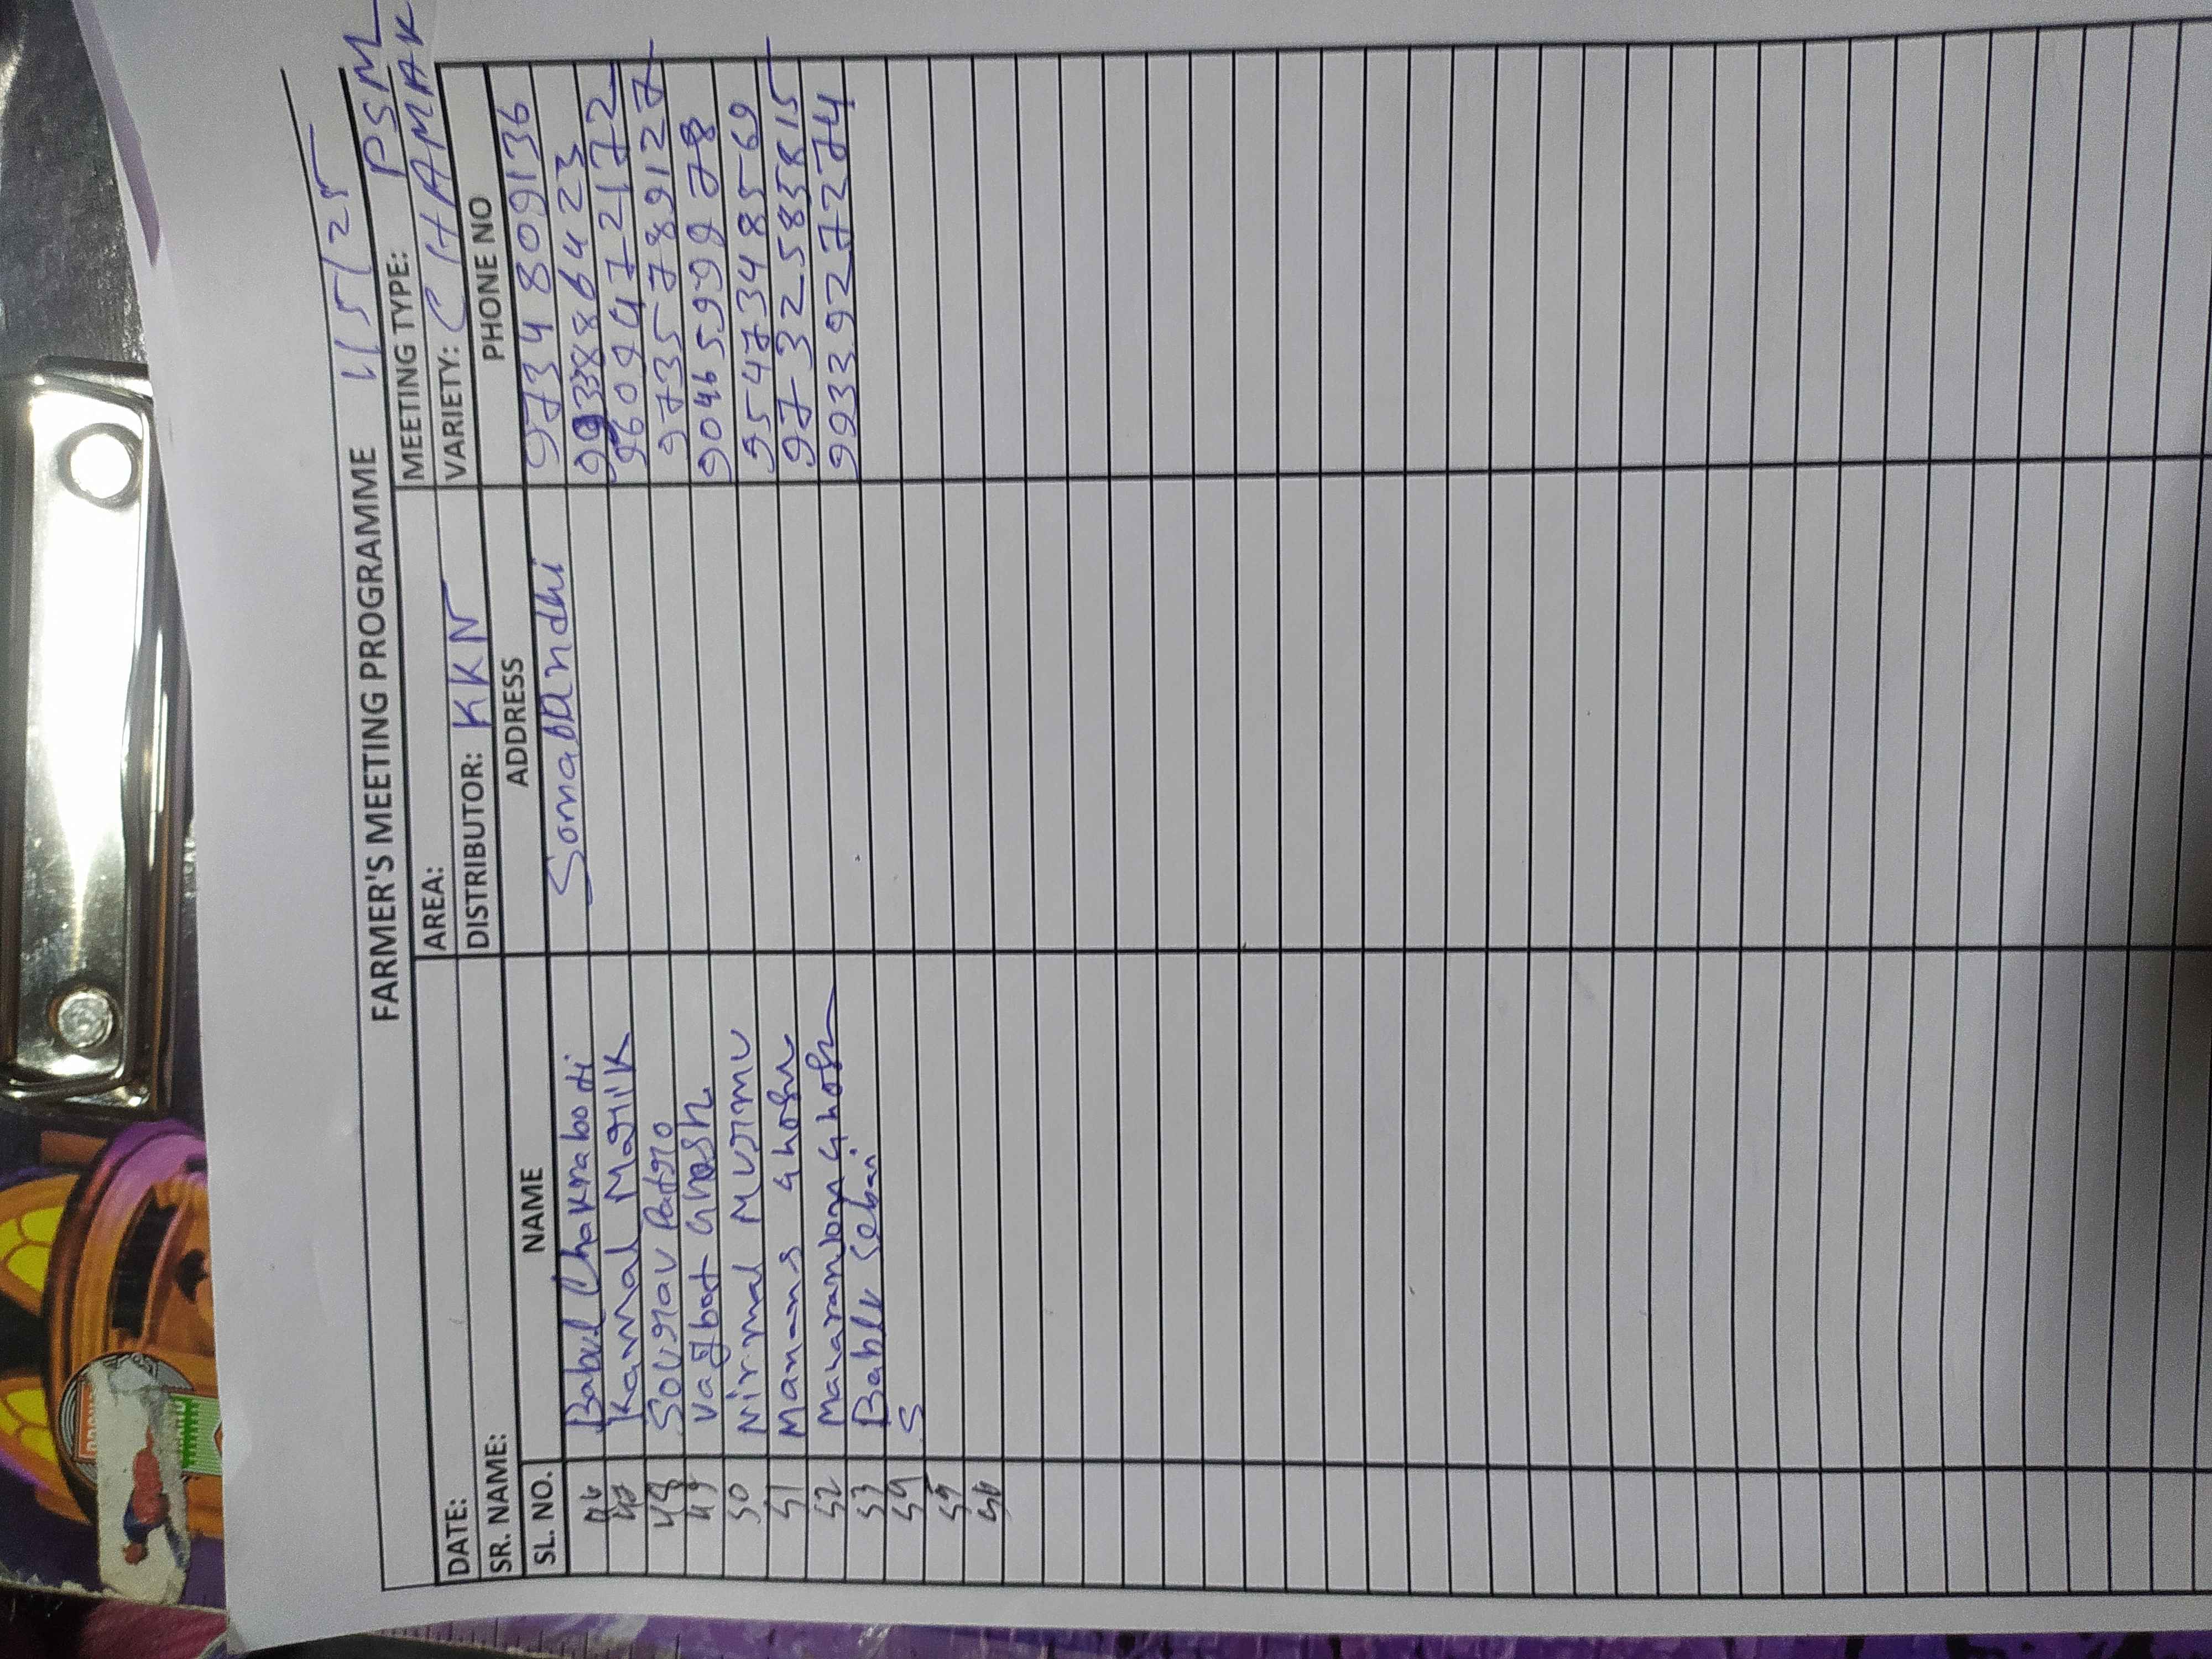 11/5/25
FARMER'S MEETING PROGRAMME
AREA: MEETING TYPE: PSM
DATE: DISTRIBUTOR: KKN VARIETY: CHAMAK
SR. NAME:
SL. NO. NAME ADDRESS PHONE NO
46 Babul Chakraboti Sonabandhi 9734809136
47 Kamal Malik 9933886423
48 Sourav Patro 9609472172
49 Vagbot Ghosh 9735789127
50 Nirmal Murmu 9046599978
51 Manans Ghosh 9547348569
52 Manaranjan Ghosh 9732585815
53 Bablu 9933927274
54 S
55
56